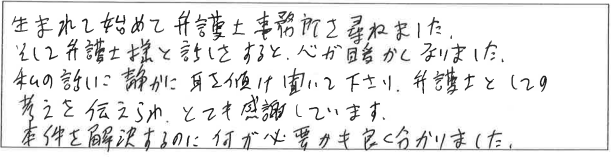 生まれて始めて弁護士事務所を尋ねました。
そして弁護士様と話しをすると、心が暖かくなりました。
私の話しに静かに耳を傾け聞いて下さり、弁護士としての
考えを伝えられ、とても感謝しています。
本件を解決するのに何が必要かも良く分かりました。